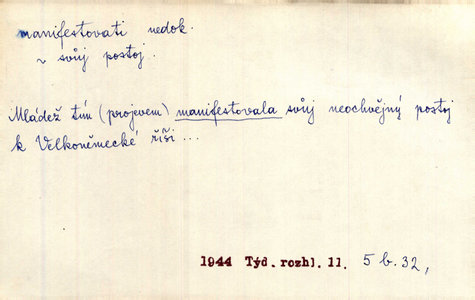 manifestovati nedok.
~ svůj postoj.
Mládež tím (projevem) manifestovala svůj neochvějný postoj
k Velkoněmecké říši...
1944 Týd. rozhl. 11. 5 b. 32,